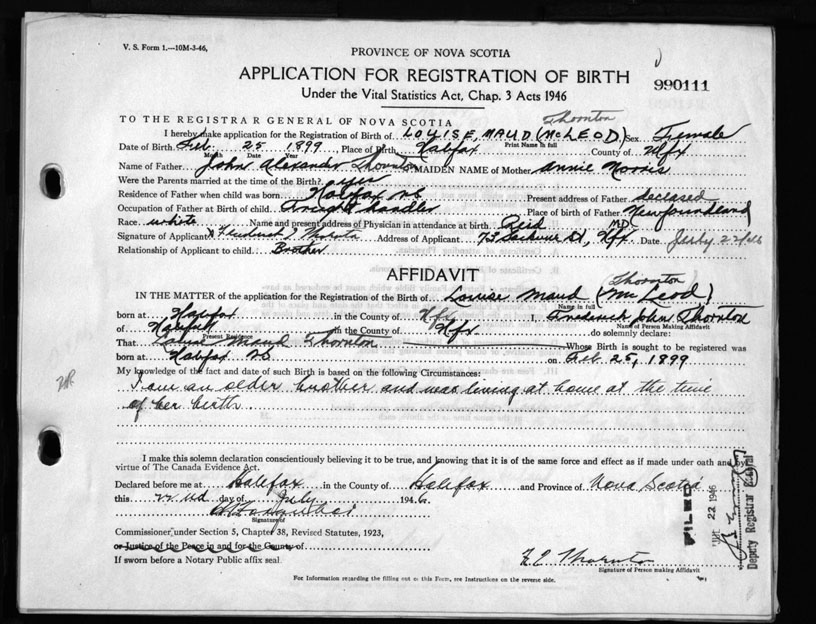 V. S. Form 1.—10M-3-46,
PROVINCE OF NOVA SCOTIA
APPLICATION FOR REGISTRATION OF BIRTH
990111
Under the Vital Statistics Act, Chap. 3 Acts 1946
Thornton
TO THE REGISTRAR GENERAL OF NOVA SCOTIA
I hereby make application for the Registration of Birth of LOUISE, MAUD (McLEOD) Sex Female
Print Name in full
Date of Birth Feb. 25 1899 Place of Birth Halifax County of Hfx
Month Date Year
Name of Father John Alexander Thornton MAIDEN NAME of Mother Annie Norris
Were the Parents married at the time of the Birth? yes
Residence of Father when child was born Halifax NS Present address of Father deceased
Occupation of Father at Birth of child Freight handler Place of birth of Father Newfoundland
Race white Name and present address of Physician in attendance at birth Reid M.D.
Signature of Applicant Frederick J Thornton Address of Applicant 73 St, Hfx. Date July 22/46
Relationship of Applicant to child Brother
AFFIDAVIT
Thornton
IN THE MATTER of the application for the Registration of the Birth of Louise Maud (McLeod)
Name in full
born at Halifax in the County of Hfx I, Frederick John Thornton
Name of Person Making Affidavit
of Halifax in the County of Hfx do solemnly declare:
Present Residence
That Louise Maud Thornton Whose Birth is sought to be registered was
born at Halifax NS on Feb 25, 1899
My knowledge of the fact and date of such Birth is based on the following Circumstances:
I am an older brother and was living at home at the time
of her birth
I make this solemn declaration conscientiously believing it to be true, and knowing that it is of the same force and effect as if made under oath and by
virtue of The Canada Evidence Act.
Declared before me at Halifax in the County of Halifax and Province of Nova Scotia
this 22nd day of July 1946.
Signature of
Commissioner under Section 5, Chapter 38, Revised Statutes, 1923,
or Justice of the Peace in and for the County of
If sworn before a Notary Public affix seal.
Thornton
Signature of Person making Affidavit
For Information regarding the filling out of this Form, see Instructions on the reverse side.
FILED
JUL 22 1946
Deputy Registrar General